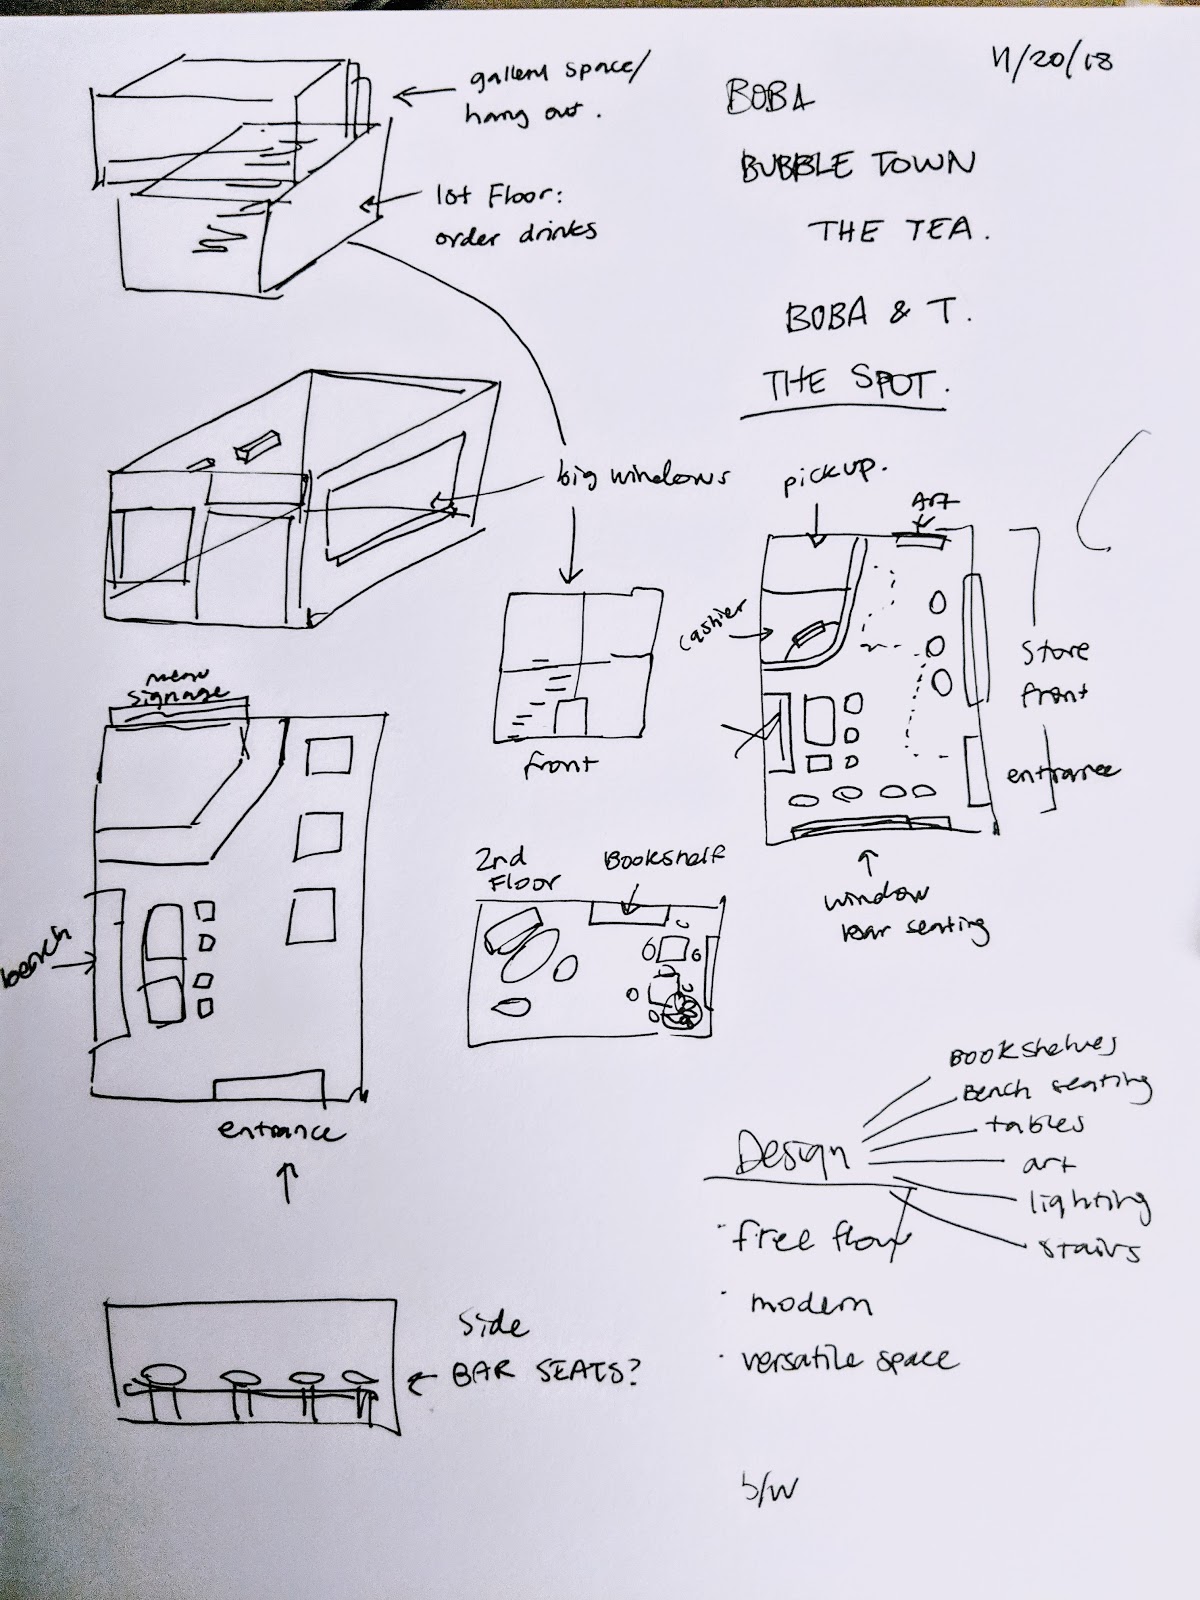 11/20/18
gallery space/
hang out.
1st Floor:
order drinks
BOBA
BUBBLE TOWN
THE TEA.
BOBA & T.
THE SPOT.
big windows
pickup.
Art
cashier
store
front
entrance
window
bar seating
front
menu
signage
bench
entrance
2nd
Floor
Bookshelf
Design
Bookshelves
Bench seating
tables
art
lighting
stairs
· free flow
· modern
· versatile space
Side
BAR SEATS?
b/w